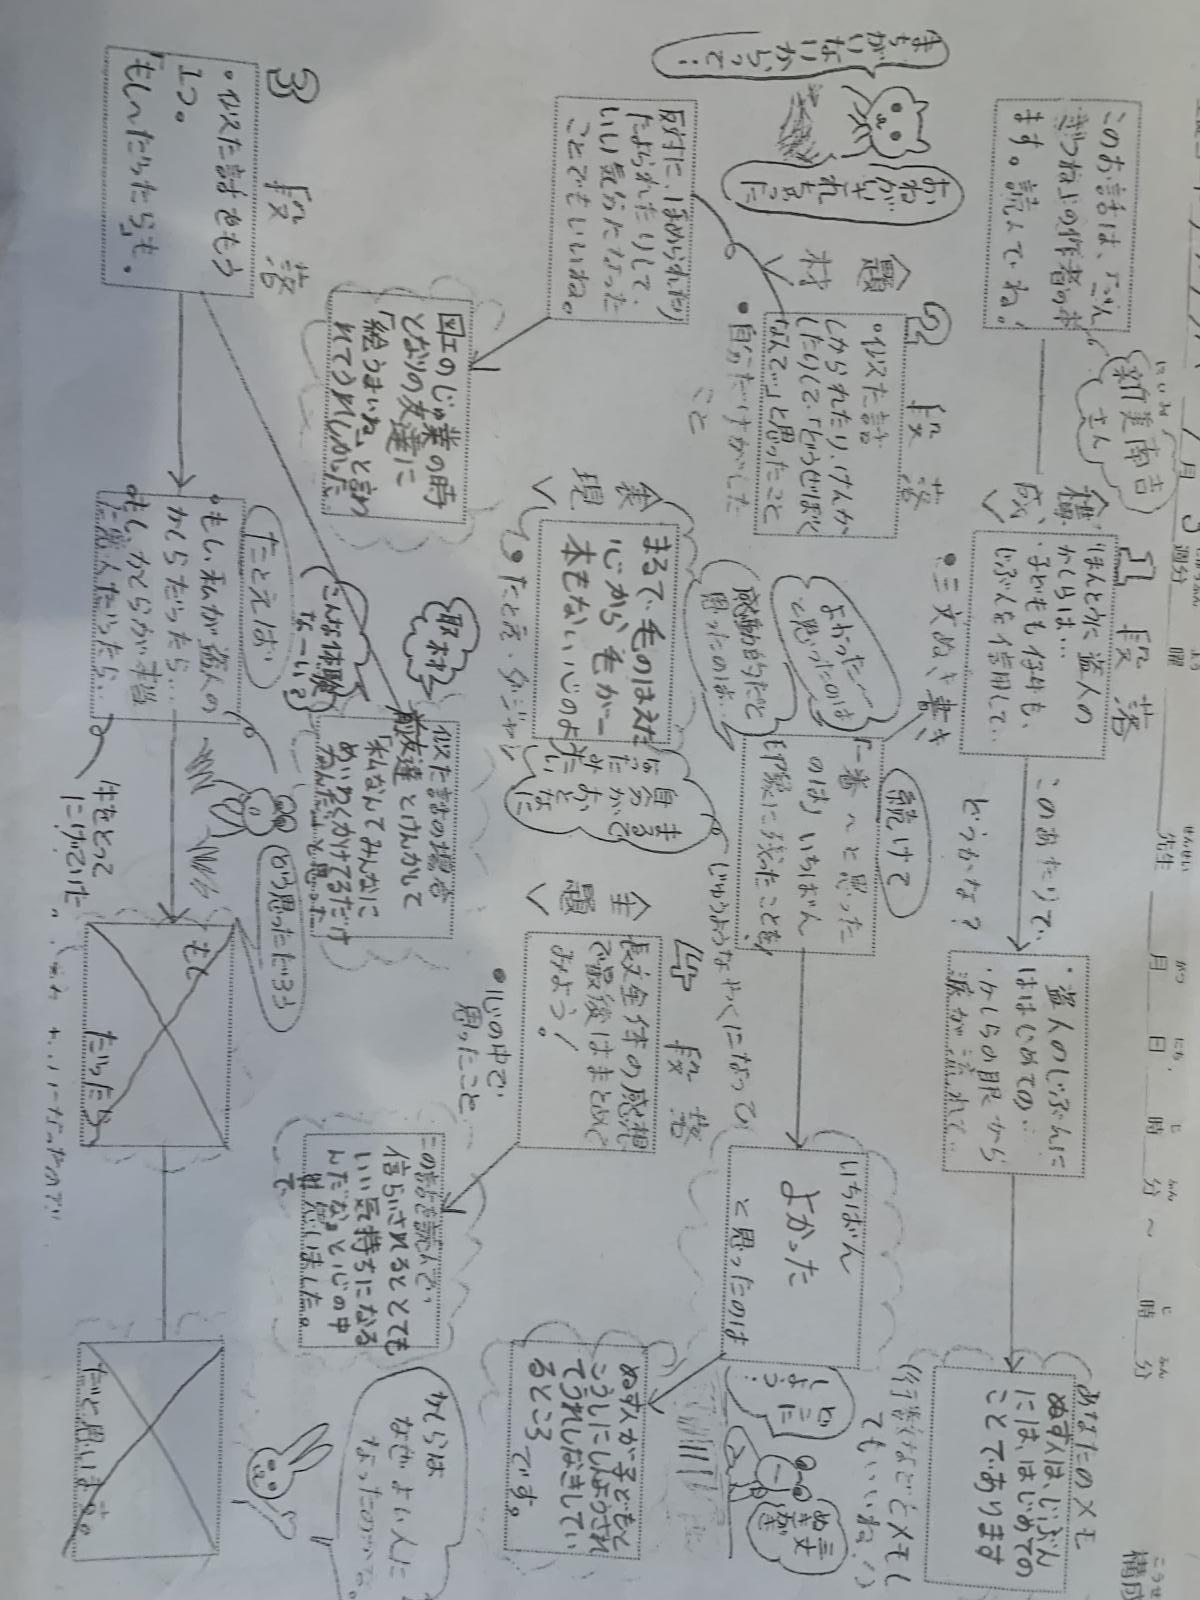 月
週分
曜
せんせい
先生
がつ
月
にち
日
じ
時
ふん
分
～
じ
時
ふん
分
こうせ
構成
このお話は、「ごん
ぎつね」の作者の本
ます。読んでね。
にいみ
新美南吉
さん
構
成
1 段落
ほんとうに盗人の
かしらは…
・子どもも仔牛も、
じぶんを信用して…
・三文ぬき書き
このあたりで、
どうかな？
・盗人のじぶんに
はじめての…
・かしらの眼から
涙が流れて…
あなたのメモ
ぬす人は、じぶん
には、はじめての
ことであります
（行数などもメモし
てもいいね！）
まち
がい
ない
からって！
おね
がい
されちゃった
題
材
2 段落
・似た話
しかられたり、けんか
したりして、「どうせぼく
なんて…」と思ったこと
・自分だけがした
こと
反対に、ほめられたり
たよられたりして、
いい気分になった
ことでもいいね。
図工のじゅ業の時
となりの友達に
「絵うまいね」と言わ
れてうれしかった
よかった～
と思ったのは
感動的だと
思ったのは…
続けて
「一番～と思った
のは」いちばん
印象に残ったことを
いちばん
よかった
と思ったのは
ぬす人が子どもと
こうしにしんようされ
てうれしなきしてい
るところです。
どこに
しよう？
表
現
まるで、毛のはえた
心から毛が一
本もない心のよ
うだ
・たとえ・ダジャレ
まるで
自分が
おとな
みたいに
じゅうようなやくになってい
主
題
4 段落
長文全体の感想
で最後はまとめて
みよう！
・心の中で
思ったこと
この本を読んで、
信らいされるととても
いい気持ちになる
んだな。と心の中
で
かしらは
なぜよい人に
なったのかな。
取材
こんな体験
な～い？
似た話の場合
友達とけんかして
「私なんてみんなに
めいわくかけてるだけ
なんだ…」と思った
3 段落
・似た話をもう
1つ。
「もし〜だったら」も。
たとえば
・もし、私が盗人の
かしらだったら…
・もし、かしらが本当
に悪人だったら…
どう思っただろう
牛をとって
にげていた。
もし
だったら
だと思います。